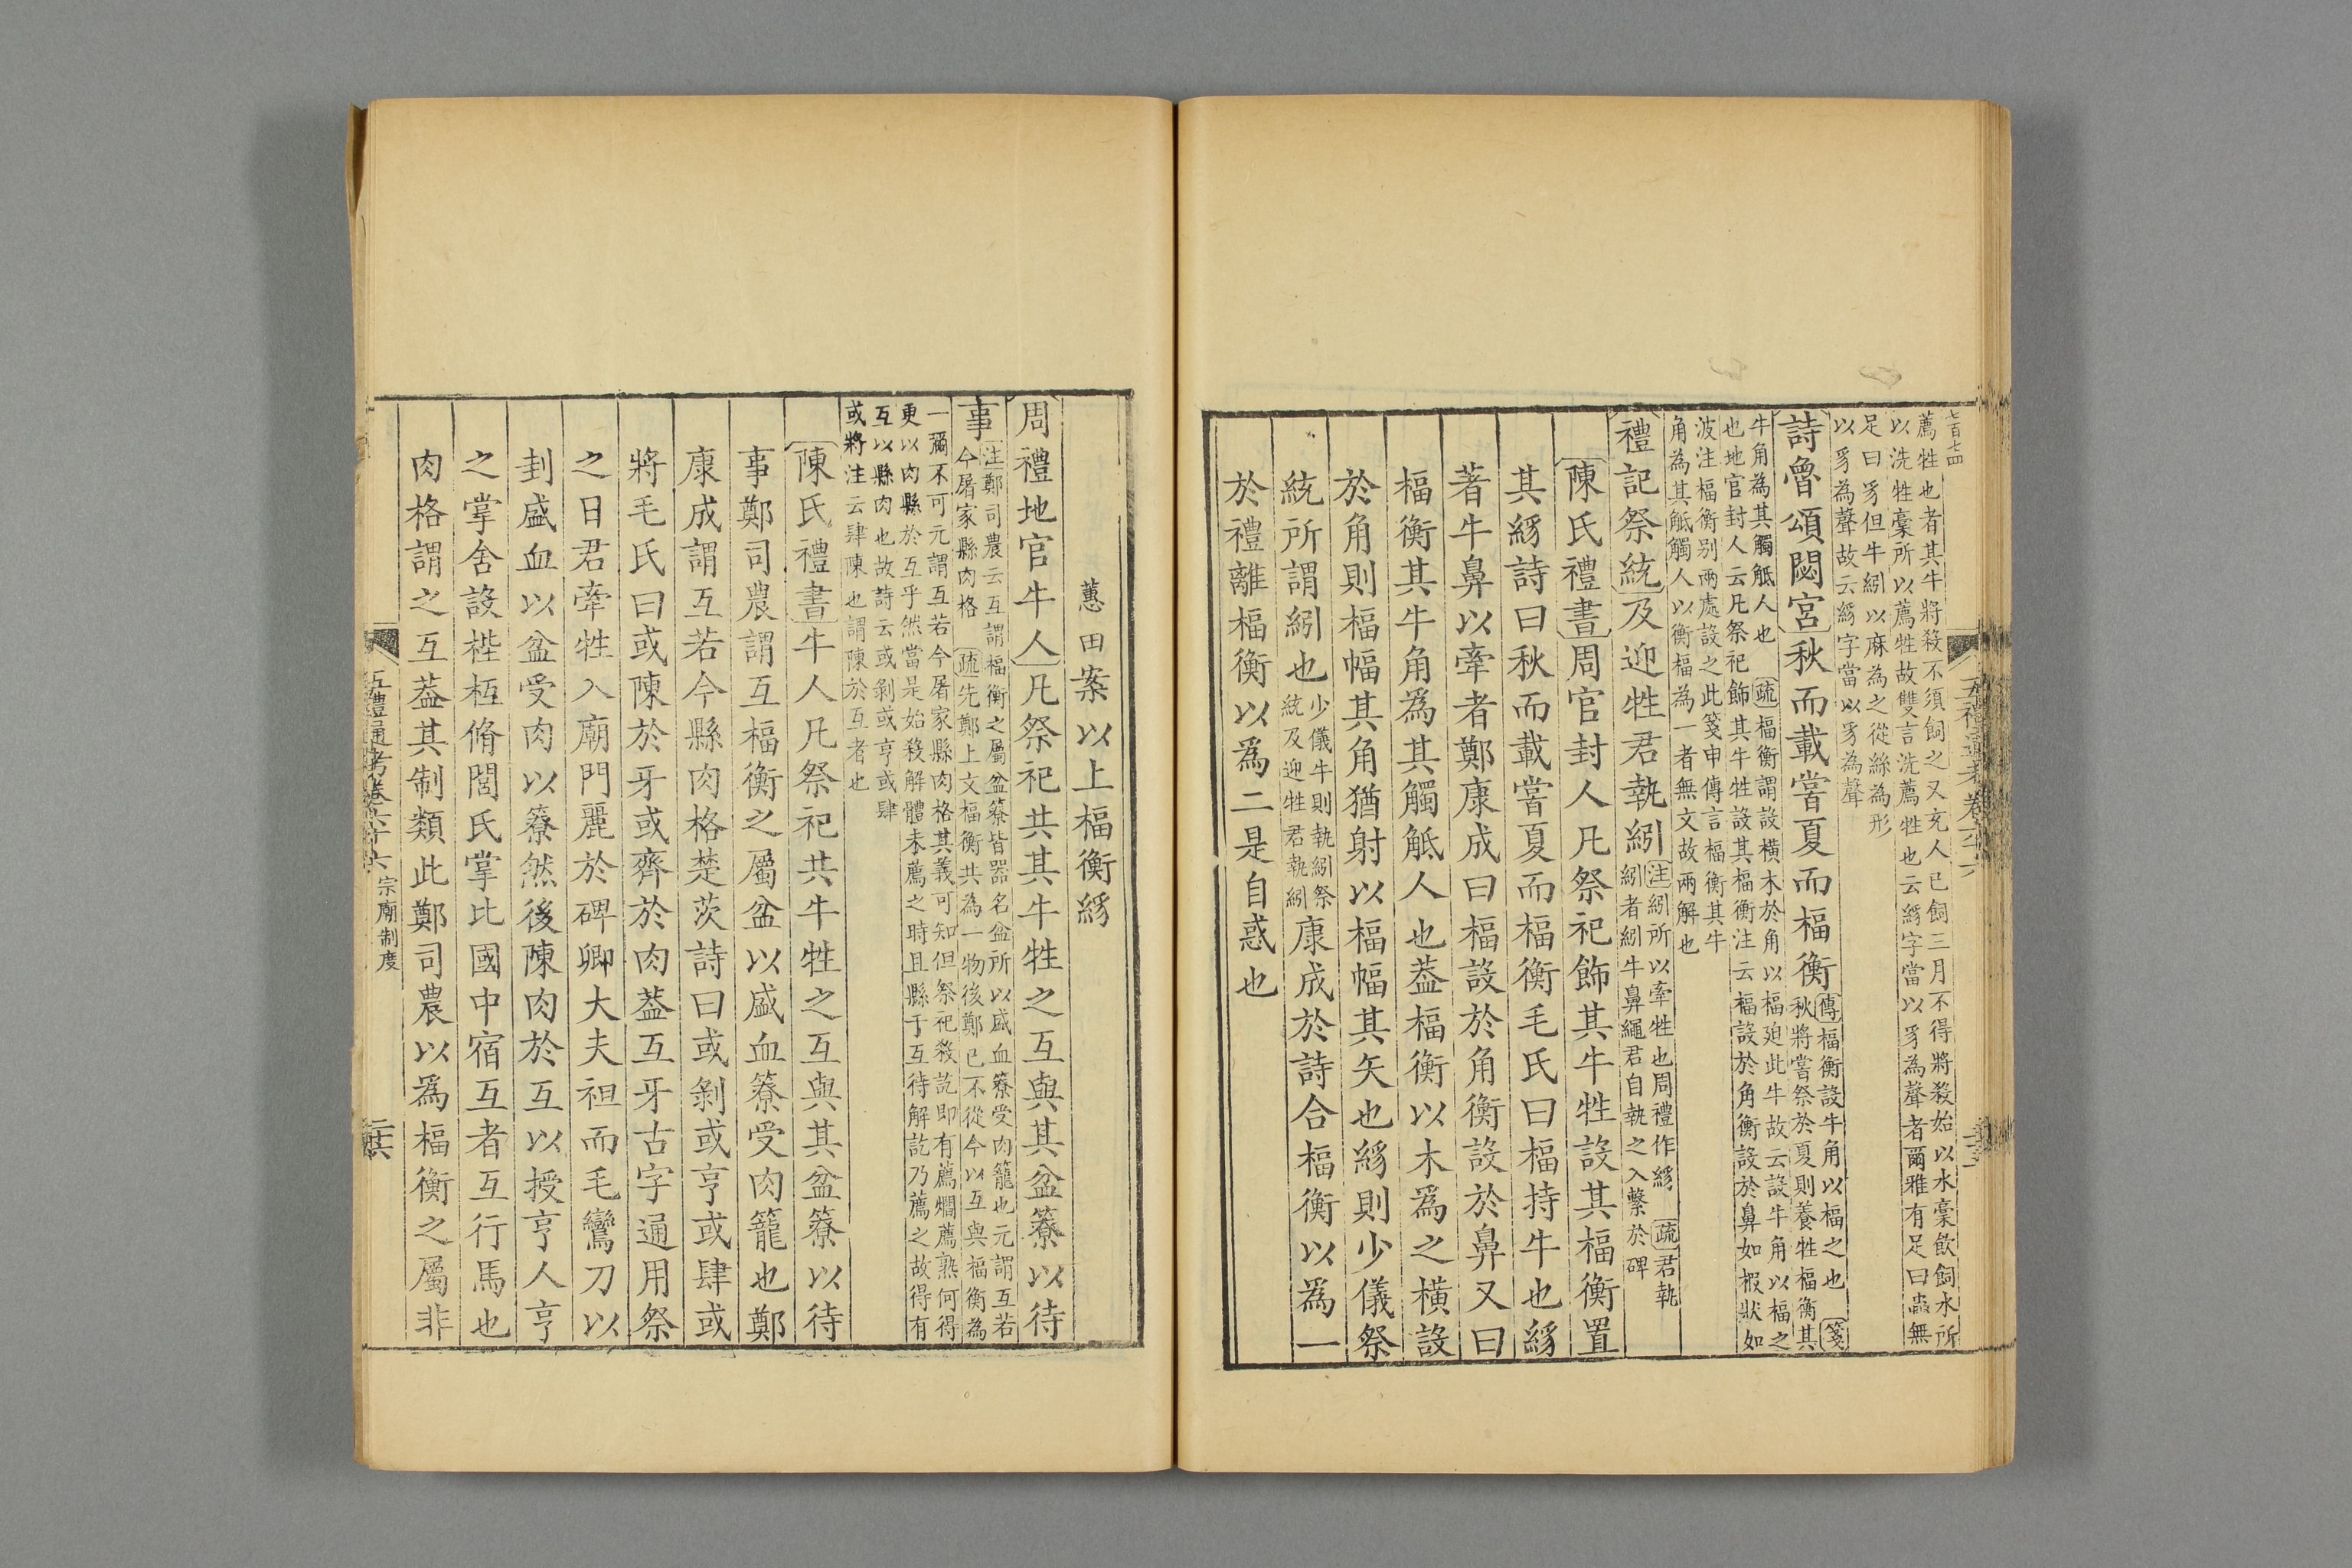 七百十四
薦牲也者其牛將殺不須飼之又充人已飼三月不得將殺始以水稾飲飼水所
以洗牲稾所以薦牲故雙言洗薦牲也云絼字當以豸為聲者爾雅有足曰蟲無
足曰豸但牛紖以麻為之從絲為形
以豸為聲故云絼字當以豸為聲
詩魯頌閟宮秋而載嘗夏而楅衡
傳楅衡設牛角以楅之也 箋
秋將嘗祭於夏則養牲楅衡其
牛角為其觸觝人也 疏楅衡謂設橫木於角以楅廹此牛故云設牛角以楅之
也地官封人云凡祭祀飾其牛牲設其楅衡注云楅設於角衡設於鼻如椵狀如
波注楅衡别兩處設之此箋申傳言楅衡其牛
角為其觝觸人以衡楅為一者無文故兩解也
禮記祭統及迎牲君執紖
注紖所以牽牲也周禮作絼 疏君執
紖者紖牛鼻繩君自執之入繫於碑
陳氏禮書周官封人凡祭祀飾其牛牲設其楅衡置
其絼詩曰秋而載嘗夏而楅衡毛氏曰楅持牛也絼
著牛鼻以牽者鄭康成曰楅設於角衡設於鼻又曰
楅衡其牛角爲其觸觝人也葢楅衡以木爲之橫設
於角則楅幅其角猶射以楅幅其矢也絼則少儀祭
統所謂紖也
少儀牛則執紖祭
統及迎牲君執紖
康成於詩合楅衡以爲一
於禮離楅衡以爲二是自惑也
五禮通考卷六十六
蕙田案以上楅衡絼
周禮地官牛人凡祭祀共其牛牲之互與其盆簝以待
事
注鄭司農云互謂楅衡之屬盆簝皆器名盆所以盛血簝受肉籠也元謂互若
今屠家縣肉格 疏先鄭上文楅衡共為一物後鄭已不從今以互與楅衡為
一彌不可元謂互若今屠家縣肉格其義可知但祭祀殺訖即有薦爓薦熟何得
更以肉縣於互乎然當是始殺解體未薦之時且縣于互待解訖乃薦之故得有
互以縣肉也故詩云或剝或亨或肆
或將注云肆陳也謂陳於互者也
陳氏禮書牛人凡祭祀共牛牲之互與其盆簝以待
事鄭司農謂互楅衡之屬盆以盛血簝受肉籠也鄭
康成謂互若今縣肉格楚茨詩曰或剝或亨或肆或
將毛氏曰或陳於牙或齊於肉葢互牙古字通用祭
之日君牽牲入廟門麗於碑卿大夫袒而毛鸞刀以
刲盛血以盆受肉以簝然後陳肉於互以授亨人亨
之掌舍設梐枑脩閭氏掌比國中宿互者互行馬也
肉格謂之互葢其制類此鄭司農以爲楅衡之屬非
五禮通考卷六十六 宗廟制度 二六